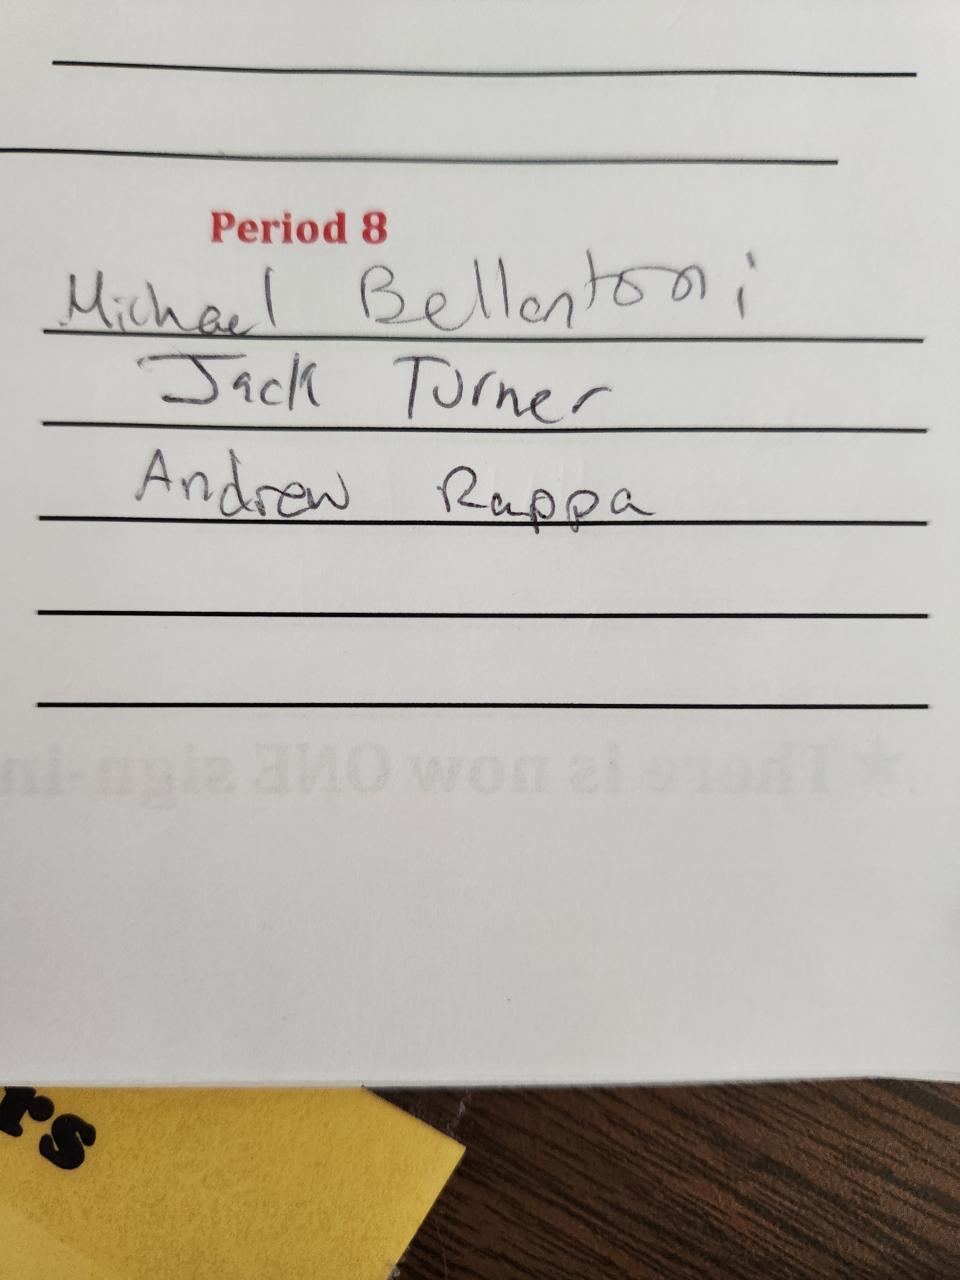 Period 8
Michael Bellantoni
Jack Turner
Andrew Rappa
★There is now ONE sign-in
rs